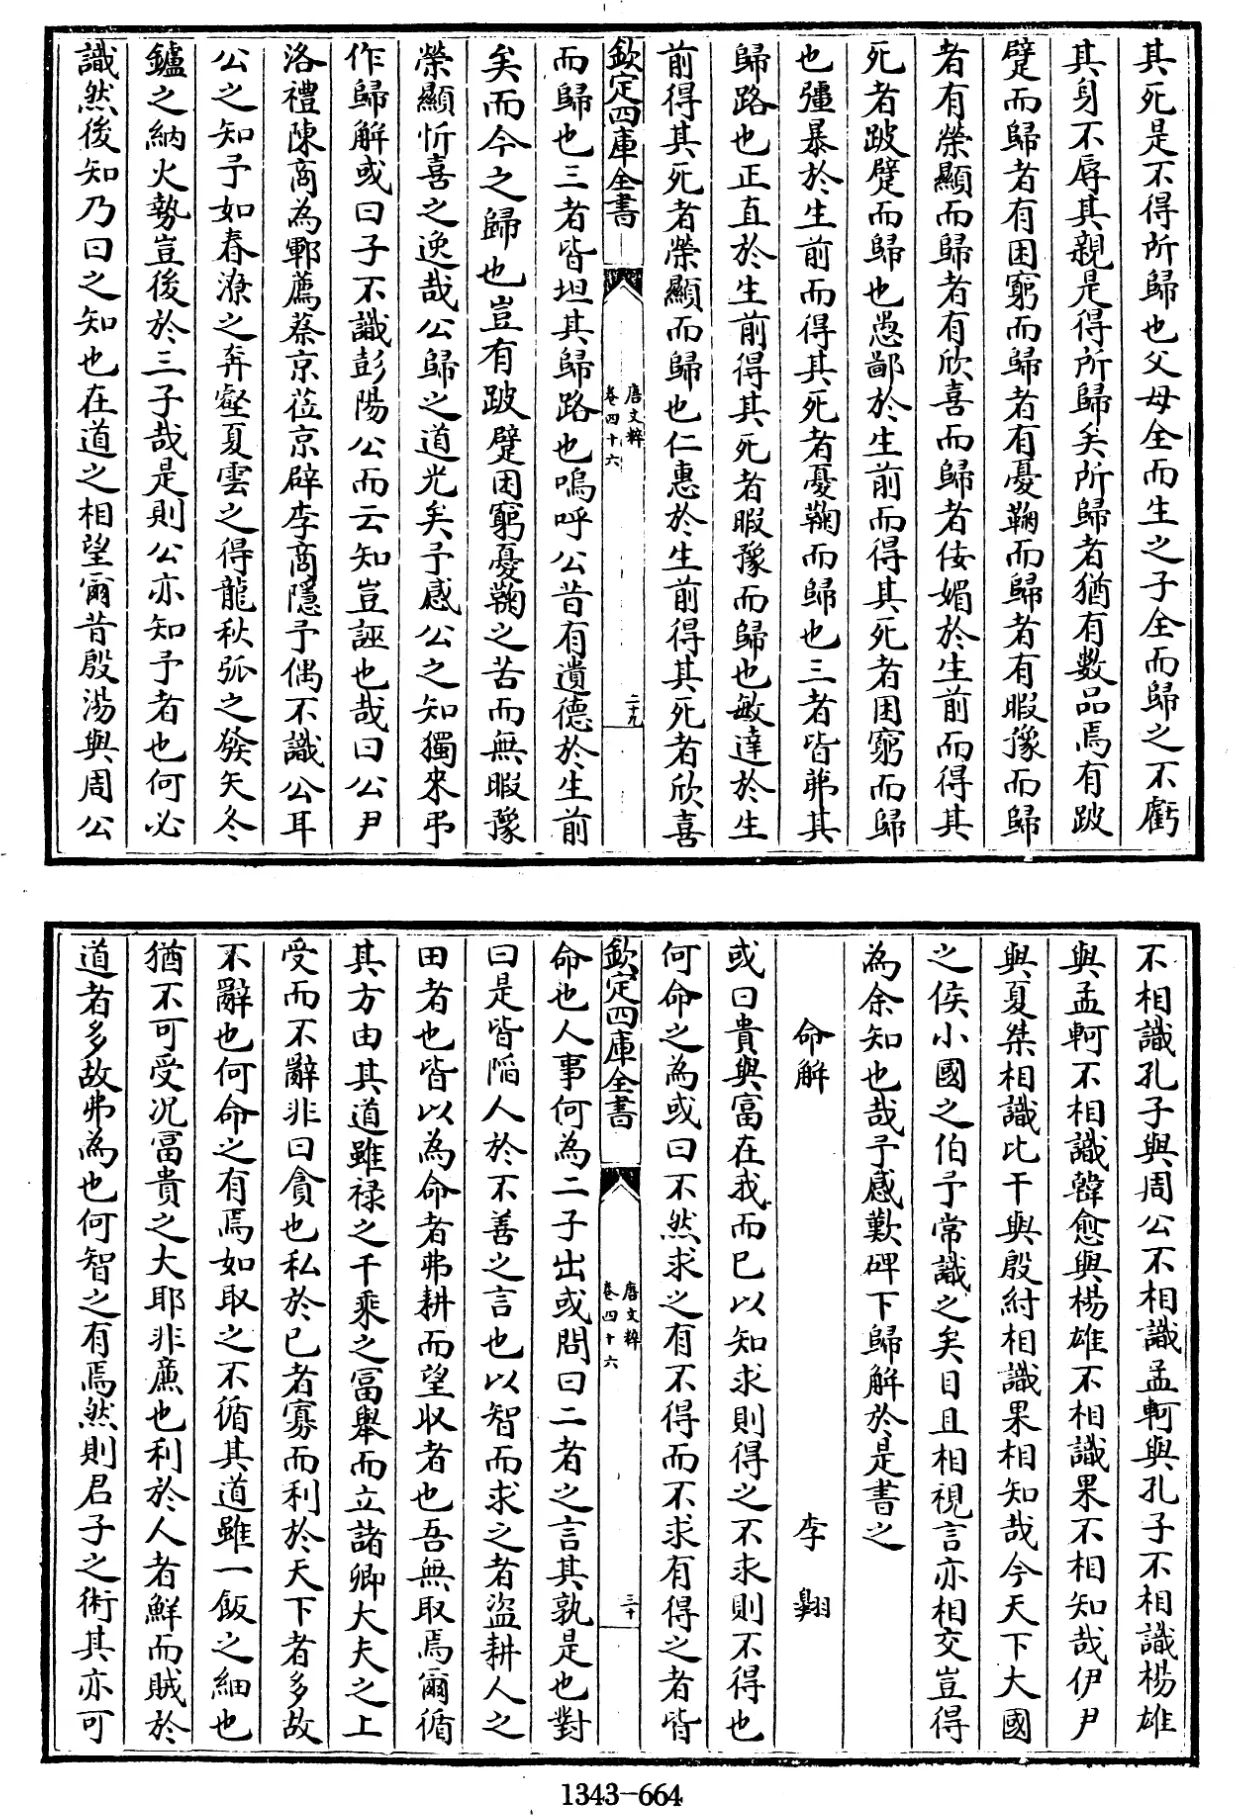 其死是不得所歸也父母全而生之子全而歸之不虧
其身不辱其親是得所歸矣所歸者猶有數品焉有跛
躄而歸者有困窮而歸者有憂鞠而歸者有暇豫而歸
者有榮顯而歸者有欣喜而歸者佞媚於生前而得其
死者跛躄而歸也愚鄙於生前而得其死者困窮而歸
也彊暴於生前而得其死者憂鞠而歸也三者皆弗其
歸路也正直於生前得其死者暇豫而歸也敏達於生
前得其死者榮顯而歸也仁惠於生前得其死者欣喜
欽定四庫全書
唐文粹
卷四十六
二十九
而歸也三者皆坦其歸路也嗚呼公昔有遺德於生前
矣而今之歸也豈有跛躄困窮憂鞠之苦而無暇豫
榮顯忻喜之逸哉公歸之道光矣予感公之知獨來弔
作歸解或曰子不識彭陽公而云知豈誣也哉曰公尹
洛禮陳商為鄆薦蔡京莅京辟李商隱予偶不識公耳
公之知予如春潦之奔壑夏雲之得龍秋弧之發矢冬
鑪之納火勢豈後於三子哉是則公亦知予者也何必
識然後知乃曰之知也在道之相望爾昔殷湯與周公
不相識孔子與周公不相識孟軻與孔子不相識楊雄
與孟軻不相識韓愈與楊雄不相識果不相知哉伊尹
與夏桀相識比干與殷紂相識果相知哉今天下大國
之侯小國之伯予常識之矣目且相視言亦相交豈得
為余知也哉予感歎碑下歸解於是書之
命解 李翱
或曰貴與富在我而已以知求則得之不求則不得也
何命之為或曰不然求之有不得而不求有得之者皆
欽定四庫全書
唐文粹
卷四十六
三十
命也人事何為二子出或問曰二者之言其孰是也對
曰是皆陷人於不善之言也以智而求之者盜耕人之
田者也皆以為命者弗耕而望收者也吾無取焉爾循
其方由其道雖祿之千乘之富舉而立諸卿大夫之上
受而不辭非曰貪也私於已者寡而利於天下者多故
不辭也何命之有焉如取之不循其道雖一飯之細也
猶不可受況富貴之大耶非廉也利於人者鮮而賊於
道者多故弗為也何智之有焉然則君子之術其亦可
1343-664